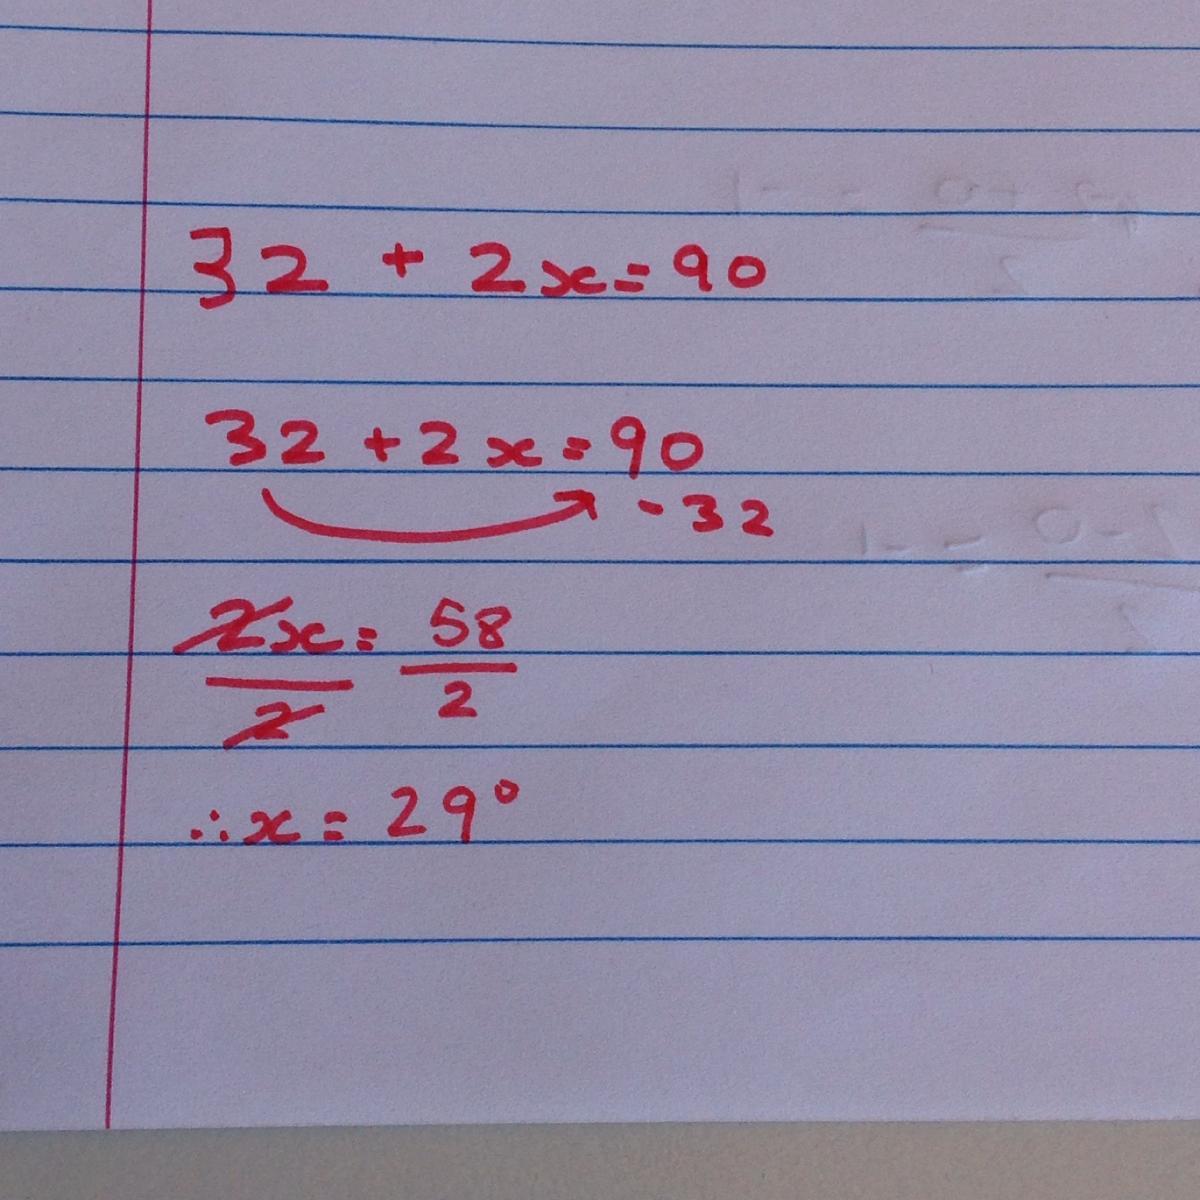 32 + 2x = 90
32 + 2x = 90
- 32
2x = 58
2 2
∴ x = 29°